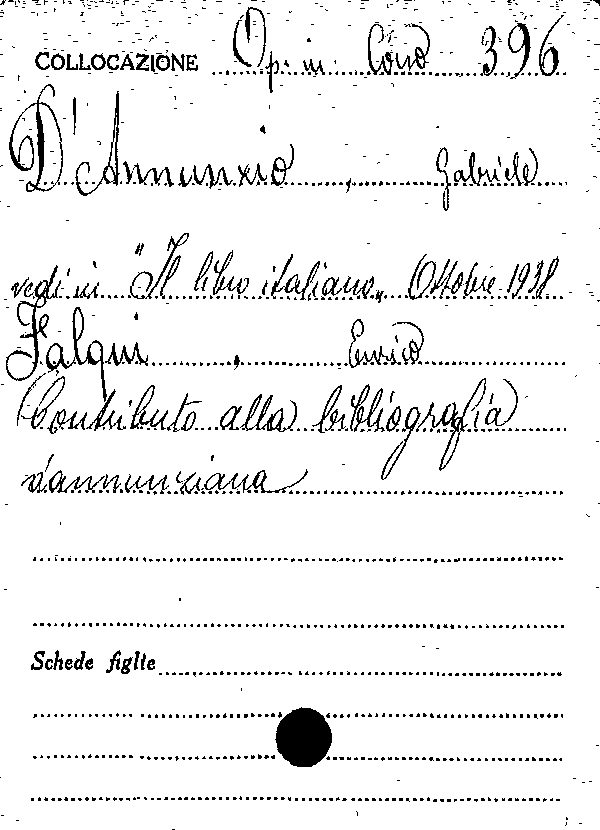 COLLOCAZIONE Op. in Cons 396
D'Annunzio, Gabriele
vedi in "Il libro italiano„ Ottobre 1938
Falqui, Enrico
Contributo alla bibliografia
d'annunziana
Schede figlie